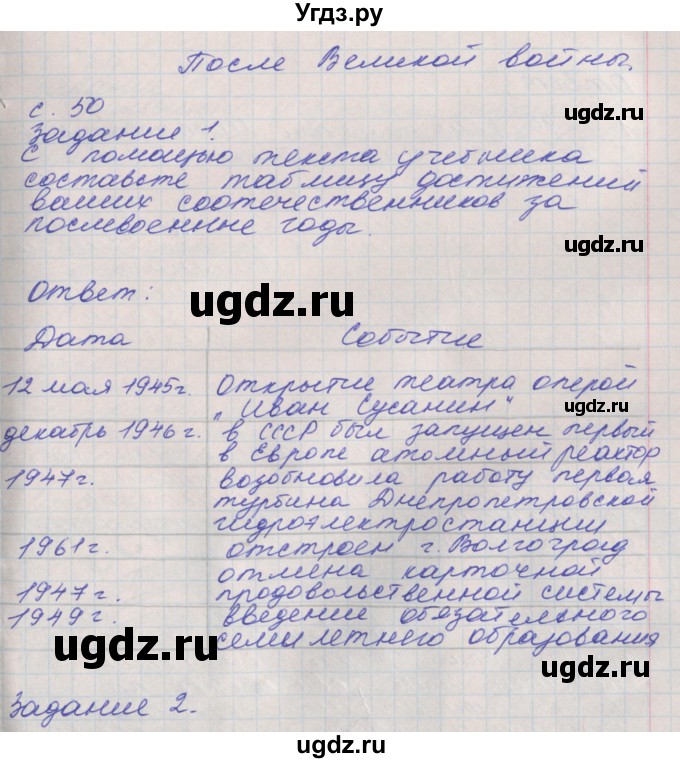 Угдз.ру
После Великой войны.
ugdz.ru
с. 50
Задание 1.
С помощью текста учебника
составьте таблицу достижений
ugdz.ru
ваших соотечественников за
послевоенные годы.
ugdz.ru
Ответ:
ugdz.ru
Дата Событие
12 мая 1945г. Открытие театра оперой
„Иван Сусанин"
ugdz.ru
декабрь 1946г. в СССР был запущен первый
в Европе атомный реактор
1947г. возобновила работу первая
турбина Днепропетровской
гидроэлектростанции
1961г. отстроен г. Волгоград
отмена карточной
1947г. продовольственной системы
1949г. введение обязательного
семилетнего образования
ugdz.ru
ugdz.ru
Задание 2.
ugdz.ru